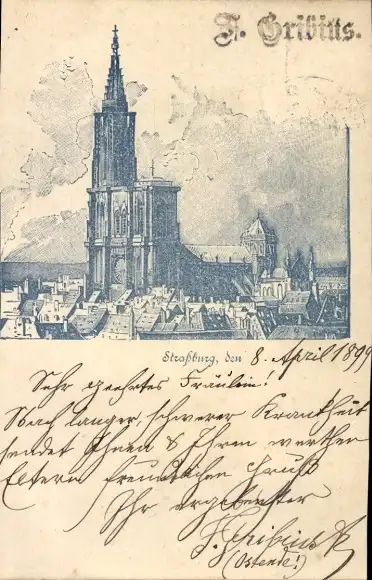 F. Gribius.
Straßburg, den 8. April 1899
Sehr geehrtes Fräulein!
Nach langer, schwerer Krankheit
sendet Ihnen & Ihren werthen
Eltern freundlichen Gruß
Ihr ergebenster
F. Gribius
(Ostende!)